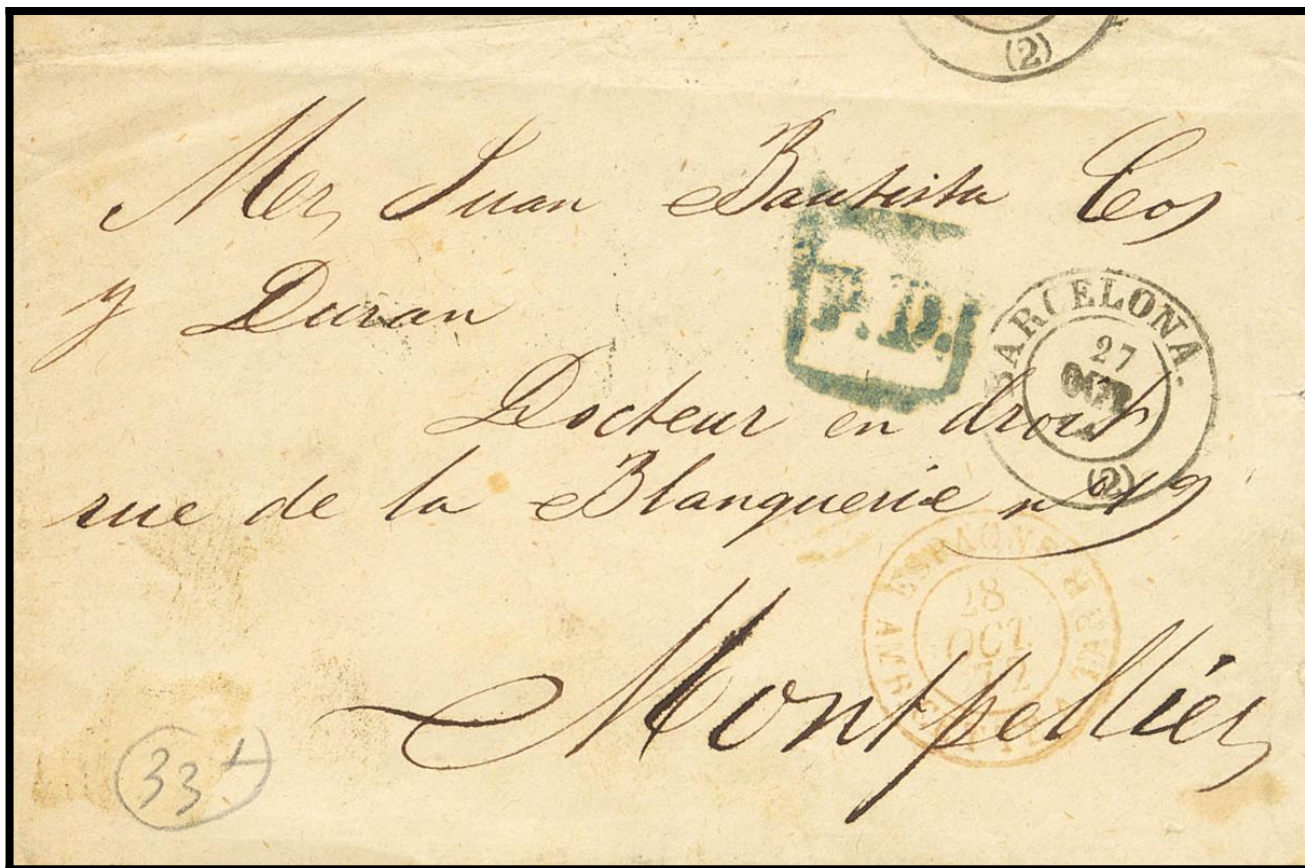 (2)
Mer Juan Bautista Cos
y Duran
P.D.
BARCELONA.
27
OCT
(2)
Docteur en droit
rue de la Blanquerie nº 19
ESPAGNE
28
OCT
72
Montpellier
33